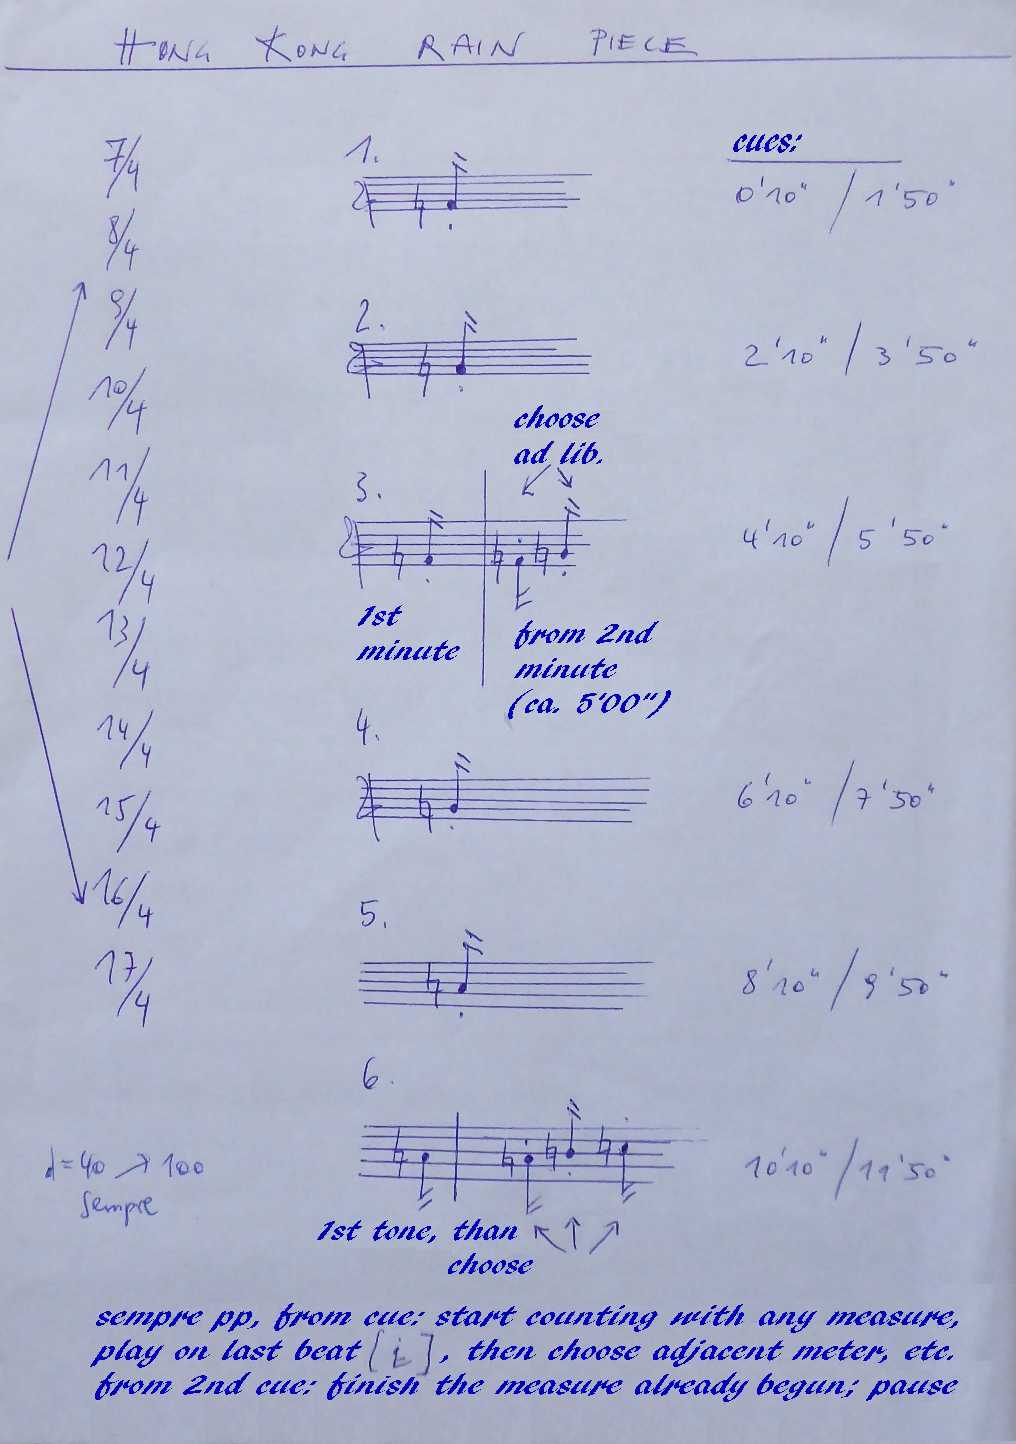 HONG KONG RAIN PIECE
7/4
8/4
9/4
10/4
11/4
12/4
13/4
14/4
15/4
16/4
17/4
♩=40 → 100
sempre
1.
2.
choose
ad lib.
3.
1st
minute
from 2nd
minute
(ca. 5'00")
4.
5.
6.
1st tone, than
choose
cues:
0'10" / 1'50"
2'10" / 3'50"
4'10" / 5'50"
6'10" / 7'50"
8'10" / 9'50"
10'10" / 11'50"
sempre pp, from cue: start counting with any measure,
play on last beat [ ], then choose adjacent meter, etc.
from 2nd cue: finish the measure already begun; pause